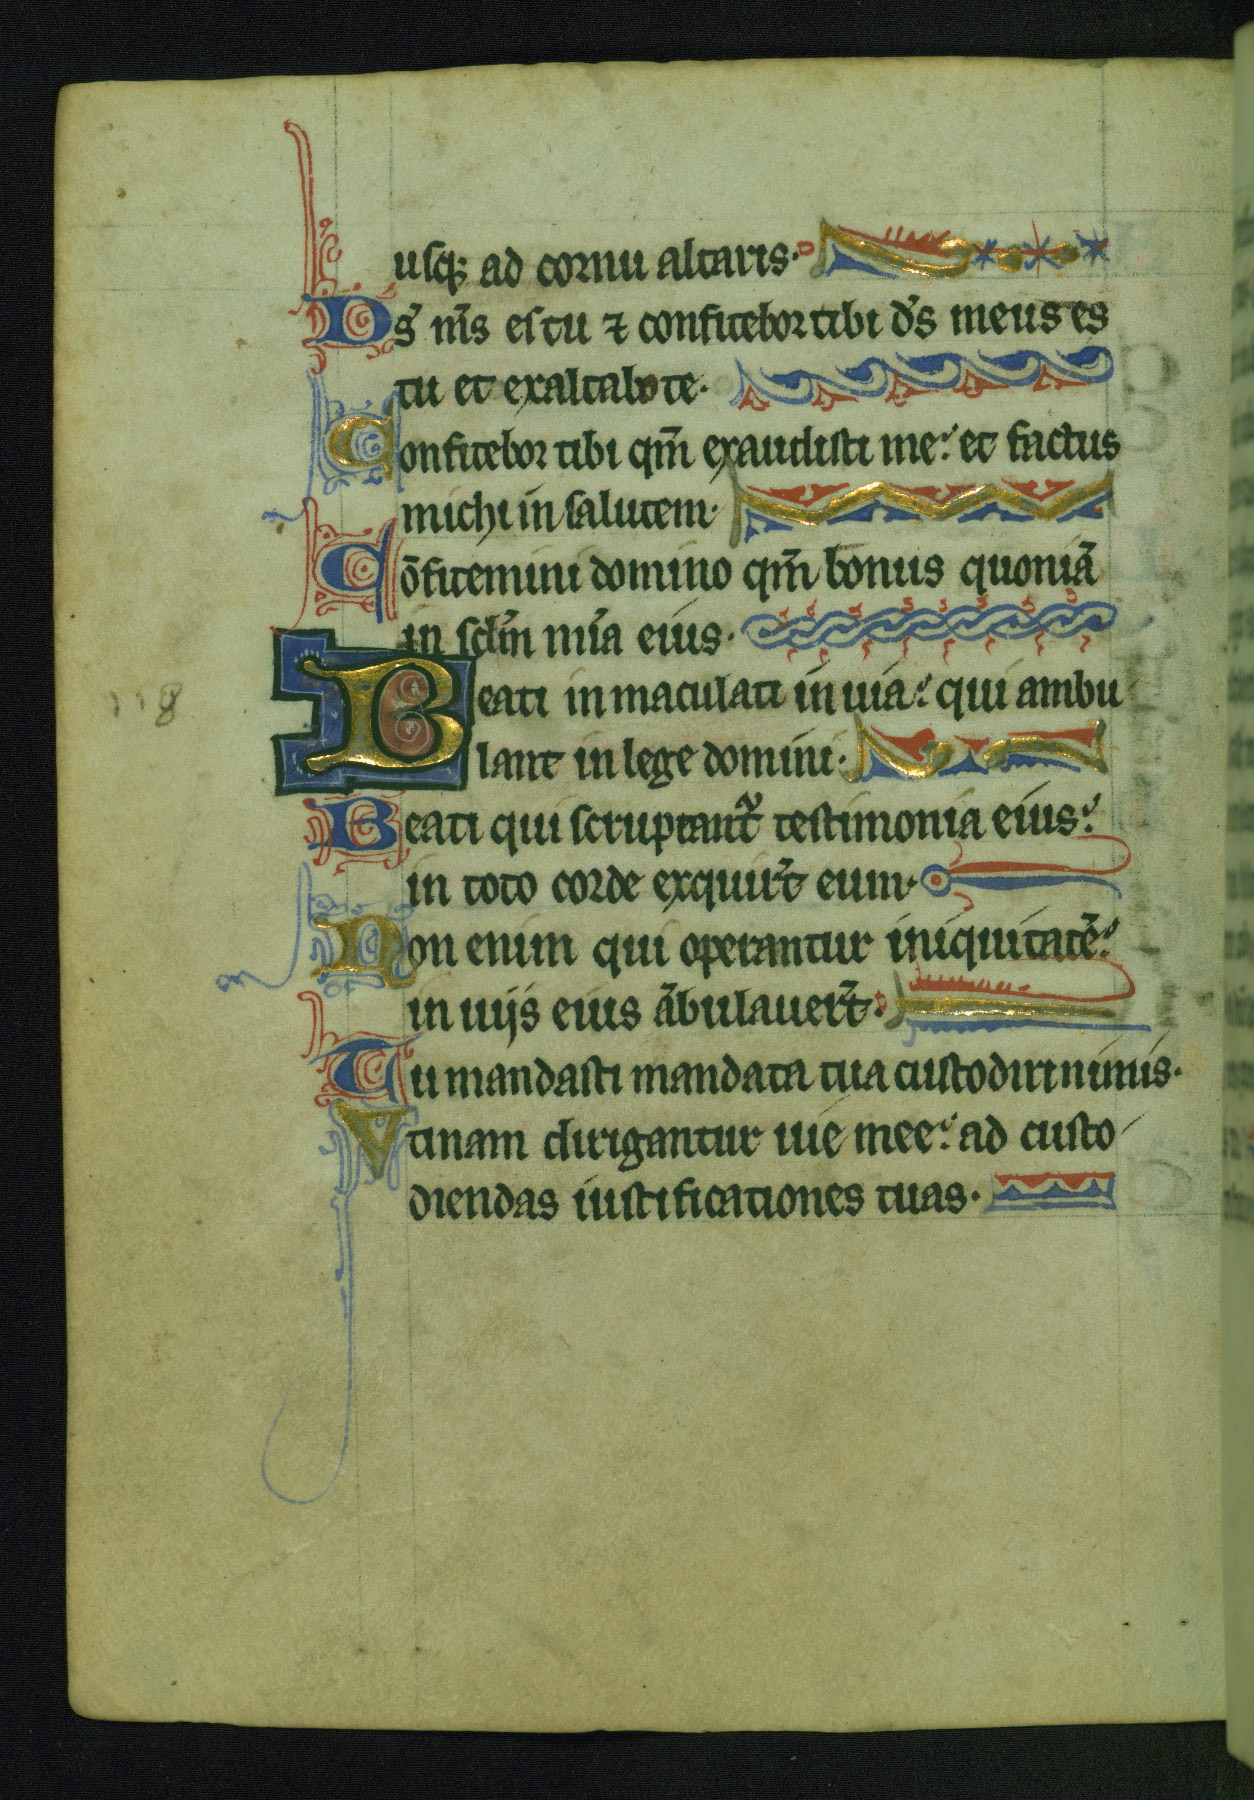 usq; ad cornu altaris.
Ds̄ nr̄s es tu ⁊ confitebor tibi ds̄ meus es
tu et exaltabo te.
Confitebor tibi qm̄ exaudisti me: et factus
michi in salutem.
Cōfitemini domino qm̄ bonus quoniā
in sclm̄ mīa eius.
Beati inmaculati in uia: qui ambu
lant in lege domini.
Beati qui scruptant᷑ testimonia eius:
in toto corde exquir̄t eum.
Non enim qui operantur iniquitatē:
in uijs eius ābulauer̄t.
Tu mandasti mandata tua custodiri nimis.
Vtinam dirigantur uie mee: ad custo
diendas iustificationes tuas.
118